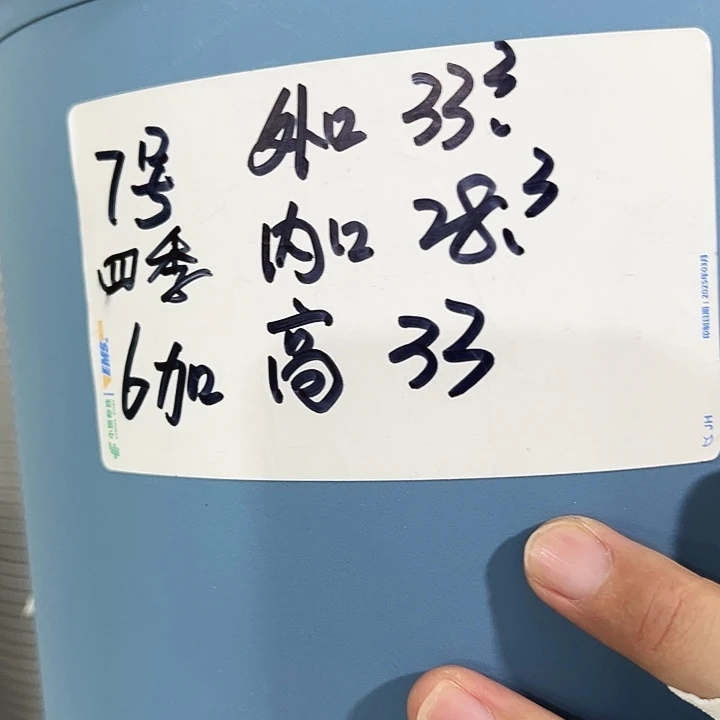 7号 外口 33.3
四季 内口 28.3
6加 高 33
EMS
中国邮政
印制日期：2025年03月